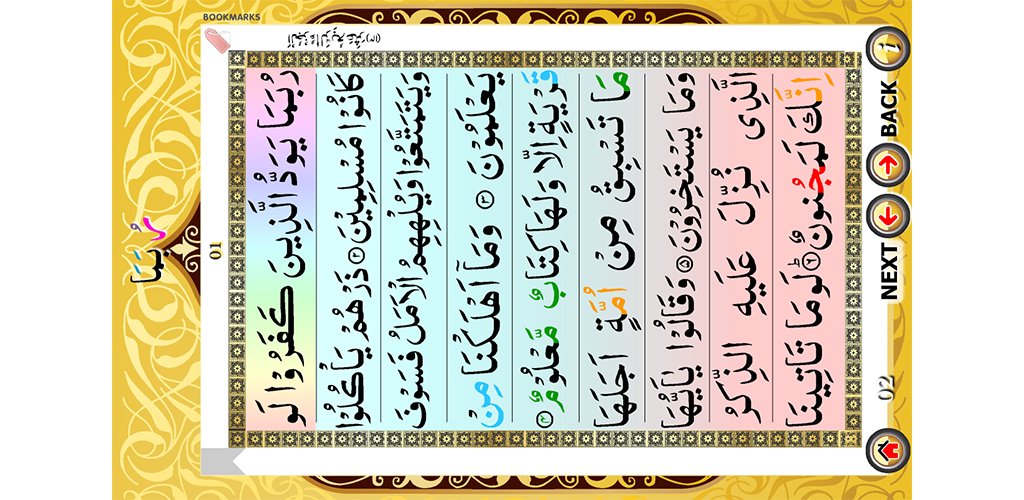 BOOKMARKS
رُبَمَا
01
رُبَمَا يَوَدُّ الَّذِيْنَ كَفَرُوْا لَوْ
كَانُوْا مُسْلِمِيْنَ ۲ ذَرْهُمْ يَاْكُلُوْا
وَيَتَمَتَّعُوْا وَيُلْهِهِمُ الْاَمَلُ فَسَوْفَ
يَعْلَمُوْنَ ۳ وَمَآ اَهْلَكْنَا مِنْ
قَرْيَةٍ اِلَّا وَلَهَا كِتَابٌ مَّعْلُوْمٌ ۴
مَا تَسْبِقُ مِنْ اُمَّةٍ اَجَلَهَا
وَمَا يَسْتَاْخِرُوْنَ ۵ وَقَالُوْا يٰٓاَيُّهَا
الَّذِىْ نُزِّلَ عَلَيْهِ الذِّكْرُ
اِنَّكَ لَمَجْنُوْنٌ ۶ لَوْمَا تَاْتِيْنَا
02
NEXT
BACK
i